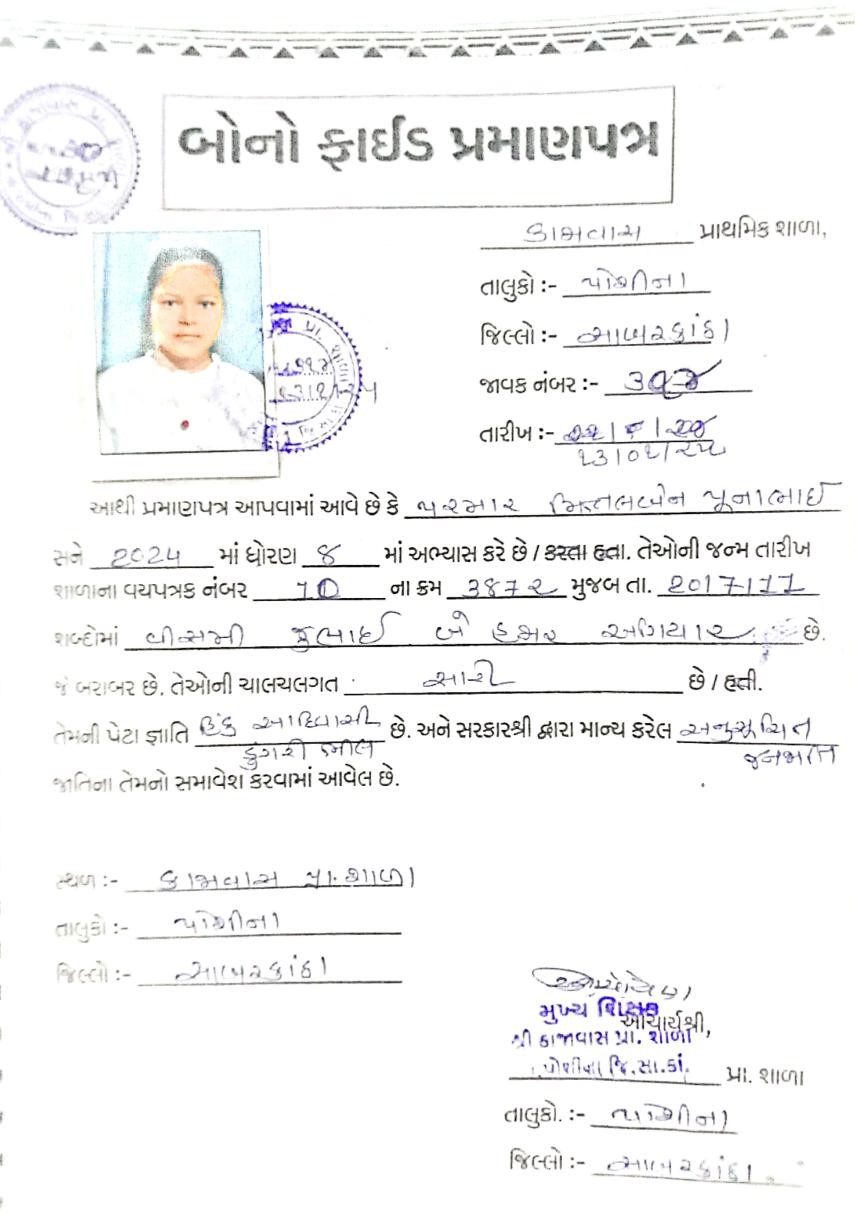 બોનો ફાઈડ પ્રમાણપત્ર
કાજાવાસ પ્રાથમિક શાળા,
તાલુકો :- પોશીના
જિલ્લો :- સાબરકાંઠા
જાવક નંબર :-
તારીખ :-
23/01/25
આથી પ્રમાણપત્ર આપવામાં આવે છે કે પરમાર મિત્તલબેન પૂનાભાઈ
સને 2024 માં ધોરણ ૪ માં અભ્યાસ કરે છે / કરતા હતા. તેઓની જન્મ તારીખ
શાળાના વયપત્રક નંબર 10 ના ક્રમ 3872 મુજબ તા. 20/7/11
શબ્દોમાં વીસમી જુલાઈ બે હજાર અગિયાર છે.
જે બરાબર છે. તેઓની ચાલચલગત સારી છે / હતી.
તેમની પેટા જ્ઞાતિ હિંદુ આદિવાસી છે. અને સરકારશ્રી દ્વારા માન્ય કરેલ અનુસૂચિત
ડુંગરી ભીલ જનજાતિ
જાતિના તેમનો સમાવેશ કરવામાં આવેલ છે.
સ્થળ :- કાજાવાસ પ્રા. શાળા
તાલુકો :- પોશીના
જિલ્લો :- સાબરકાંઠા
મુખ્ય શિક્ષક
આચાર્યશ્રી,
શ્રી કાજાવાસ પ્રા. શાળા
પોશીના જિ. સા.કાં. પ્રા. શાળા
તાલુકો. :- પોશીના
જિલ્લો :- સાબરકાંઠા.